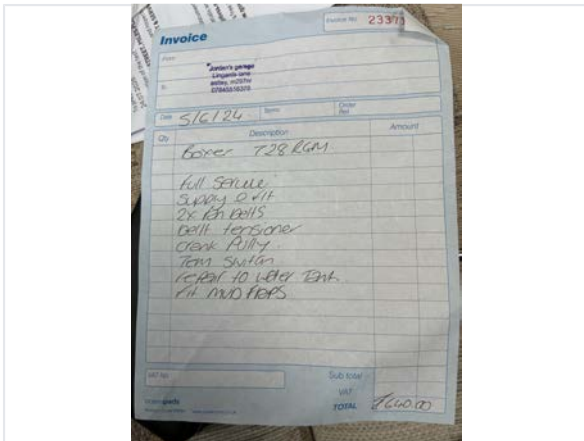 Invoice
Invoice No.
From
Jordan's garage
To
Date 5/6/24 Terms Order Ref.
Qty Description Amount
Boxer T28 RGM
Full Service
Supply & fit
2x fan belts
belt tensioner
Crank Pully
Tem Switch
repair to Water Tank
Fit MUD FlapS
VAT No.
Sub total
VAT
TOTAL £640.00